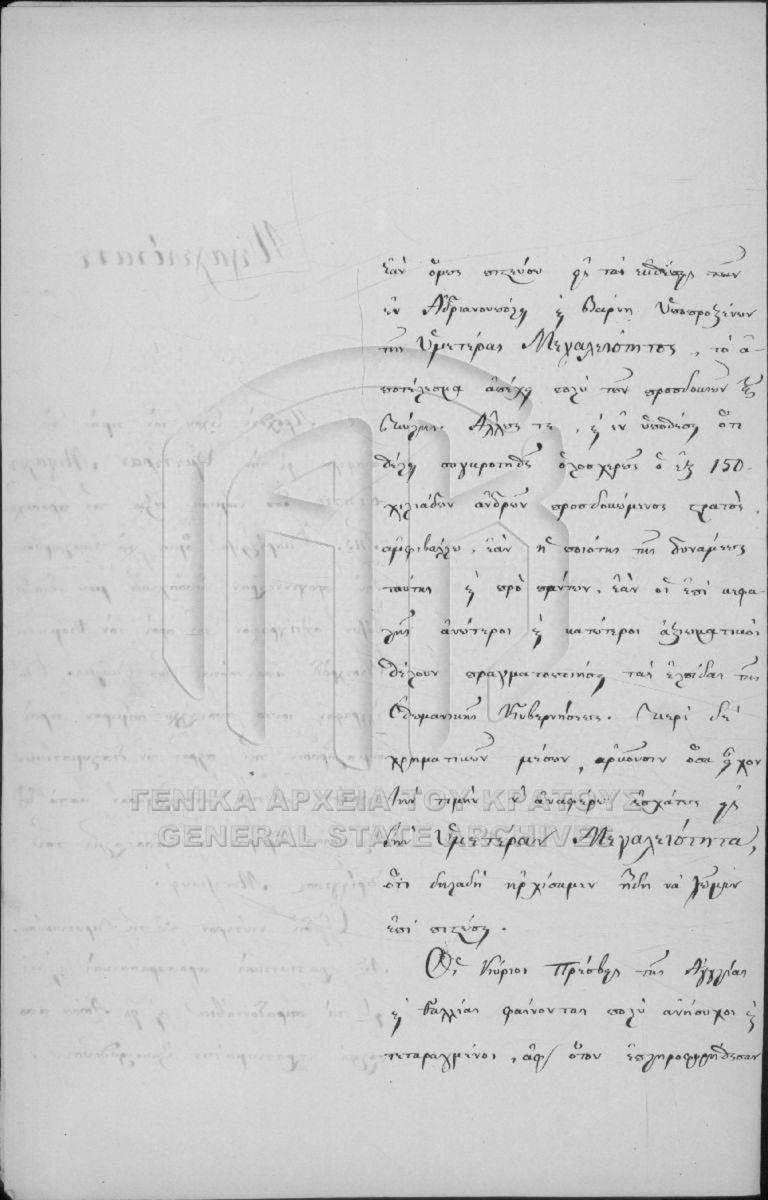 ἐὰν ὅμως πιστεύσω εἰς τὰς εἰδήσεις τῶν
ἐν Ἀδριανουπόλει καὶ Βάρνῃ Ὑποπροξένων
τῆς Ὑμετέρας Μεγαλειότητος, τὸ ἀ-
ποτέλεσμα ἀπέχει πολὺ τῶν προσδοκιῶν τῆς
Πύλης. Ἄλλως τε, καὶ ἐν ὑποθέσει ὅτι
θέλει συγκροτηθῆ ὁλοσχερῶς ὁ ἐκ 150-
χιλιάδων ἀνδρῶν προσδοκώμενος στρατὸς,
ἀμφιβάλλω, ἐὰν ἡ ποιότης τῆς δυνάμεως
ταύτης καὶ πρὸ πάντων, ἐὰν οἱ ἐπὶ κεφα-
λῆς ἀνώτεροι καὶ κατώτεροι ἀξιωματικοὶ
θέλουν πραγματοποιήσει τὰς ἐλπίδας τῆς
Ὀθωμανικῆς Κυβερνήσεως. Περὶ δὲ
χρηματικῶν μέσων, ἀρκοῦσιν ὅσα εἶχον
τὴν τιμὴν ν' ἀναφέρω ἐσχάτως εἰς
τὴν Ὑμετέραν Μεγαλειότητα,
ὅτι δηλαδὴ ἠρχίσαμεν ἤδη νὰ ζῶμεν
ἐπὶ πιστώσει.
Οἱ Κύριοι Πρέσβεις τῆς Ἀγγλίας
καὶ Γαλλίας φαίνονται πολὺ ἀνήσυχοι καὶ
τεταραγμένοι, ἀφ' ὅτου ἐπληροφορήθησαν
ΓΕΝΙΚΑ ΑΡΧΕΙΑ ΤΟΥ ΚΡΑΤΟΥΣ
GENERAL STATE ARCHIVES